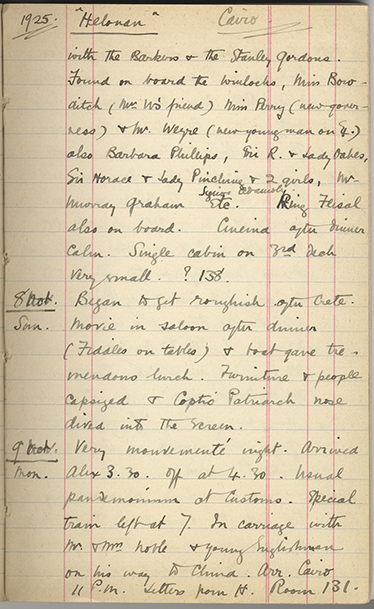 1925. "Helouan" Cairo
with the Barkers & the Stanley Gordons.
Found on board the Winlocks, Miss Bow-
ditch (Mrs W's friend) Miss Perry (new gover-
ness) & Mr. (new young man on E.)
also Barbara Phillips, Sir R. & Lady Oakes,
Sir Horace & Lady Pinching & 2 girls, Mr.
Murray Graham Etc. King Feisal
also on board. Cinema after dinner
Calm. Single cabin on 3rd deck
very small. ? 138.
8 Nov. Began to get roughish after Crete.
Sun. Movie in saloon after dinner
(Fiddles on tables) & boat gave tre-
mendous lurch. Furniture & people
capsized & Coptic Patriarch nose
dived into the screen.
9 Nov. Very mouvementé night. Arrived
Mon. Alex 3.30. Off at 4.30. Usual
pandemonium at Customs. Special
train left at 7. In carriage with
Mr. & Mrs Noble & young Englishman
on his way to China. Arr. Cairo
11 P.M. Letters from H. Room 131.